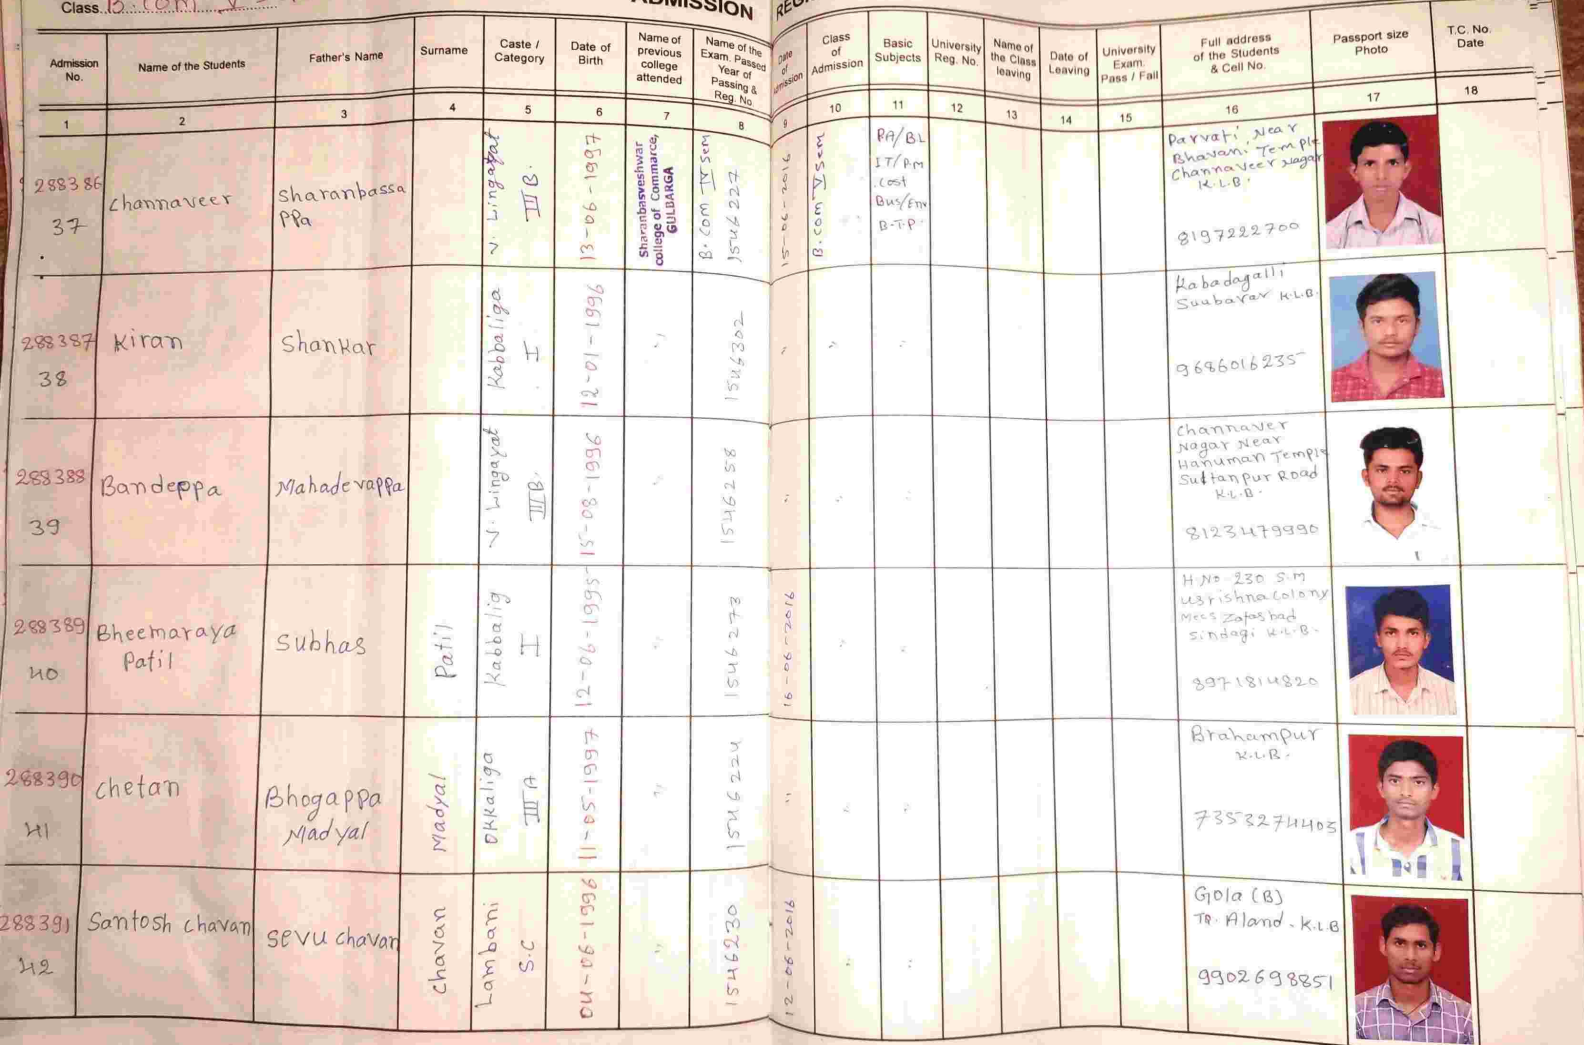 Class B.Com V
ADMISSION
Admission No.
Name of the Students
Father's Name
Surname
Caste / Category
Date of Birth
Name of previous college attended
Name of the Exam. Passed Year of Passing & Reg. No.
Date of Admission
Class of Admission
Basic Subjects
University Reg. No.
Name of the Class leaving
Date of Leaving
University Exam. Pass / Fall
Full address of the Students & Cell No.
Passport size Photo
T.C. No. Date
1
2
3
4
5
6
7
8
9
10
11
12
13
14
15
16
17
18
288386
37
Channaveer
Sharanbassa
PPa
V. Lingayat
III B.
13-06-1997
Sharanbasveshwar
college of Commerce,
GULBARGA
B. Com IV Sem
1546227
15-06-2016
B.com V Sem
RA/BL
IT/P.M
Cost
Bus/Env
B.T.P.
Parvati Near
Bhavani Temple
Channaveer Nagar
K.L.B.
8197222700
288387
38
Kiran
Shankar
Kabbaliga
I
12-01-1996
"
1546302
"
"
"
Kabadagalli
K.L.B.
9686016235
288388
39
Bandeppa
Mahadevappa
V. Lingayat
III B.
15-08-1996
"
1546258
"
"
"
Channaver
Nagar Near
Hanuman Temple
Sultanpur Road
K.L.B.
8123479990
288389
40
Bheemaraya
Patil
Subhas
Patil
Kabbalig
I
12-06-1995
"
1546273
16-06-2016
"
"
H.No-230 S.M
colony
Sindagi K.L.B.
8971814820
288390
41
Chetan
Bhogappa
Madyal
Madyal
Okkaliga
III A
11-05-1997
"
1546224
"
"
"
Brahampur
K.L.B.
7353274403
288391
42
Santosh Chavan
Sevu chavan
Chavan
Lambani
S.C
04-06-1996
"
1546230
12-06-2016
"
"
Gola (B)
TQ. Aland. K.L.B
9902698851